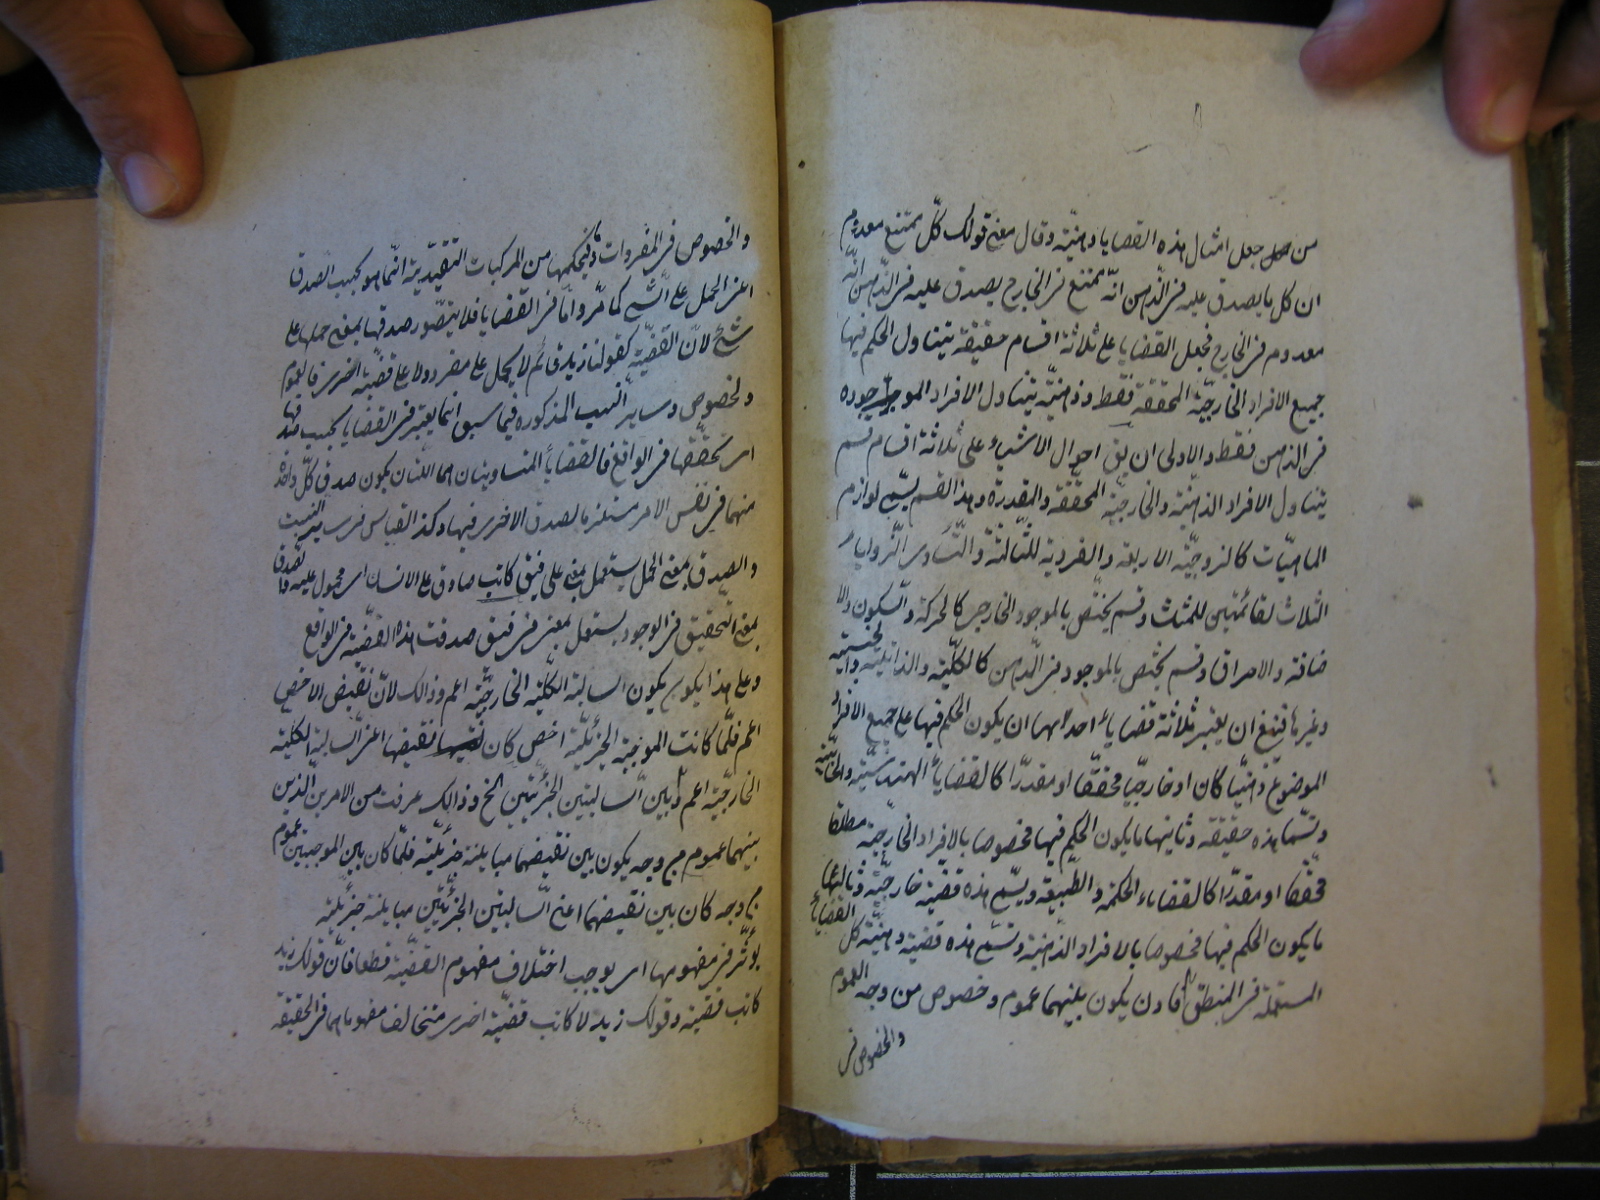 من جعل امثال هذه القضايا ذهنيّة وقال معنى قولك كلّ ممتنع معدوم
ان كل ما يصدق عليه فى الذهن انّه ممتنع فى الخارج يصدق عليه فى الذهن انّه
معدوم فى الخارج فجعل القضايا على ثلاثة اقسام حقيقة يتناول الحكم فيها
جميع الافراد الخارجيّة المحققة فقط وذهنيّة يتناول الافراد الموجوده
فى الذهن فقط والاولى ان يق احوال الاشياء على ثلاثة اقسام قسم
يتناول الافراد الذهنيّة والخارجيّة المحققة والمقدرة وهذا القسم يسّمى لوازم
الماهيّات كالزوجيّة الاربعة والفردية للثّالثة والتّساوى الزّوايا
الثلاث لقائمتين للمثلث وقسم يختّص بالموجود الخارجى كالحركة والسّكون والا
ضائة والاحراق وقسم يختّص بالموجود فى الذهن كالكليّة والذاتيّة والجنسيّة
وغيرها فينبغى ان يعتبر ثلاثة قضايا احداها ان يكون الحكم فيها على جميع الافراد
الموضوع ذهنيّا كان او خارجيّا محقّقا او مقدّرا كالقضايا الهندسيّة والحسابيّة
وتسّما هذه حقيقة وثانيتها ما يكون الحكم فيها مخصوصا بالافراد الخارجيّة مطلقا
محقّقا او مقدّرا كالقضاء الحكمة والطّبيعة ويسّمى هذه قضيّة خارجيّة وثالثها
ما يكون الحكم فيها مخصوصا بالافراد الذهنيّة وتسّمى هذه قضيّة ذهنيّة كل القضايا
المستعملة فى المنطق فاذن يكون بينهما عموم وخصوص من وجه العموم
والخصوص فى
والخصوص فى المفردات وفيحكمها من المركبات التقيّديّة انّما هو بحسب الصدق
اعنى الحمل على الشّئ كما مّر وامّا فى القضايا فلا يتصّور صدقها بمعنى حملها على
شئ لانّ القضيّة كقولنا زيد قائم لا يحمل على مفرد ولا على قضيّة اخرى فالعموم
ولخصوص وساير النسب المذكوره فيما سبق انما يعتبر فى القضايا بحسب صدقها
اى تحقّقها فى الواقع فالقضايا المتساويتان هما اللتان يكون صدق كلّ واحدة
منهما فى نفس الامر مستلزما لصدق الاخرى فيها وكذا القياس فى ساير النسب
والصدق بمعنى الحمل يستعمل بعلى فيق كاتب صادق على الانسان اى محمول عليه والصّدق
بمعنى التّحقيق فى الوجود يستعمل بفى فيق صدقت هذه القضّية فى الواقع
وعلى هذا يكون السالبة الكليّة الخارجيّة اعم وذالك لانّ نقيض الاخص
اعم فلمّا كانت الموجبة الجزئيّة اخص كان نقيضها اعنى السّالبة الكليّة
الخارجيّة اعم وبين السّالبتين الجزئيّتين الخ وذالك عرفت من الامرين الّذين
بينهما عموم من وجه يكون بين نقيضهما مباينة جزئيّة فلمّا كان بين الموجبتين عموم
من وجه كان بين نقيضهما اعنى السّالبتين الجزئيّتين مباينة جزئيّة
يؤثّر فى مفهومها اى يوجب اختلاف مفهوم القضيّة قطعا فانّ قولك زيد
كاتب قضيّة وقولك زيد لا كاتب قضيّة اخرى متخالف مفهوماهما فى الحقيقة